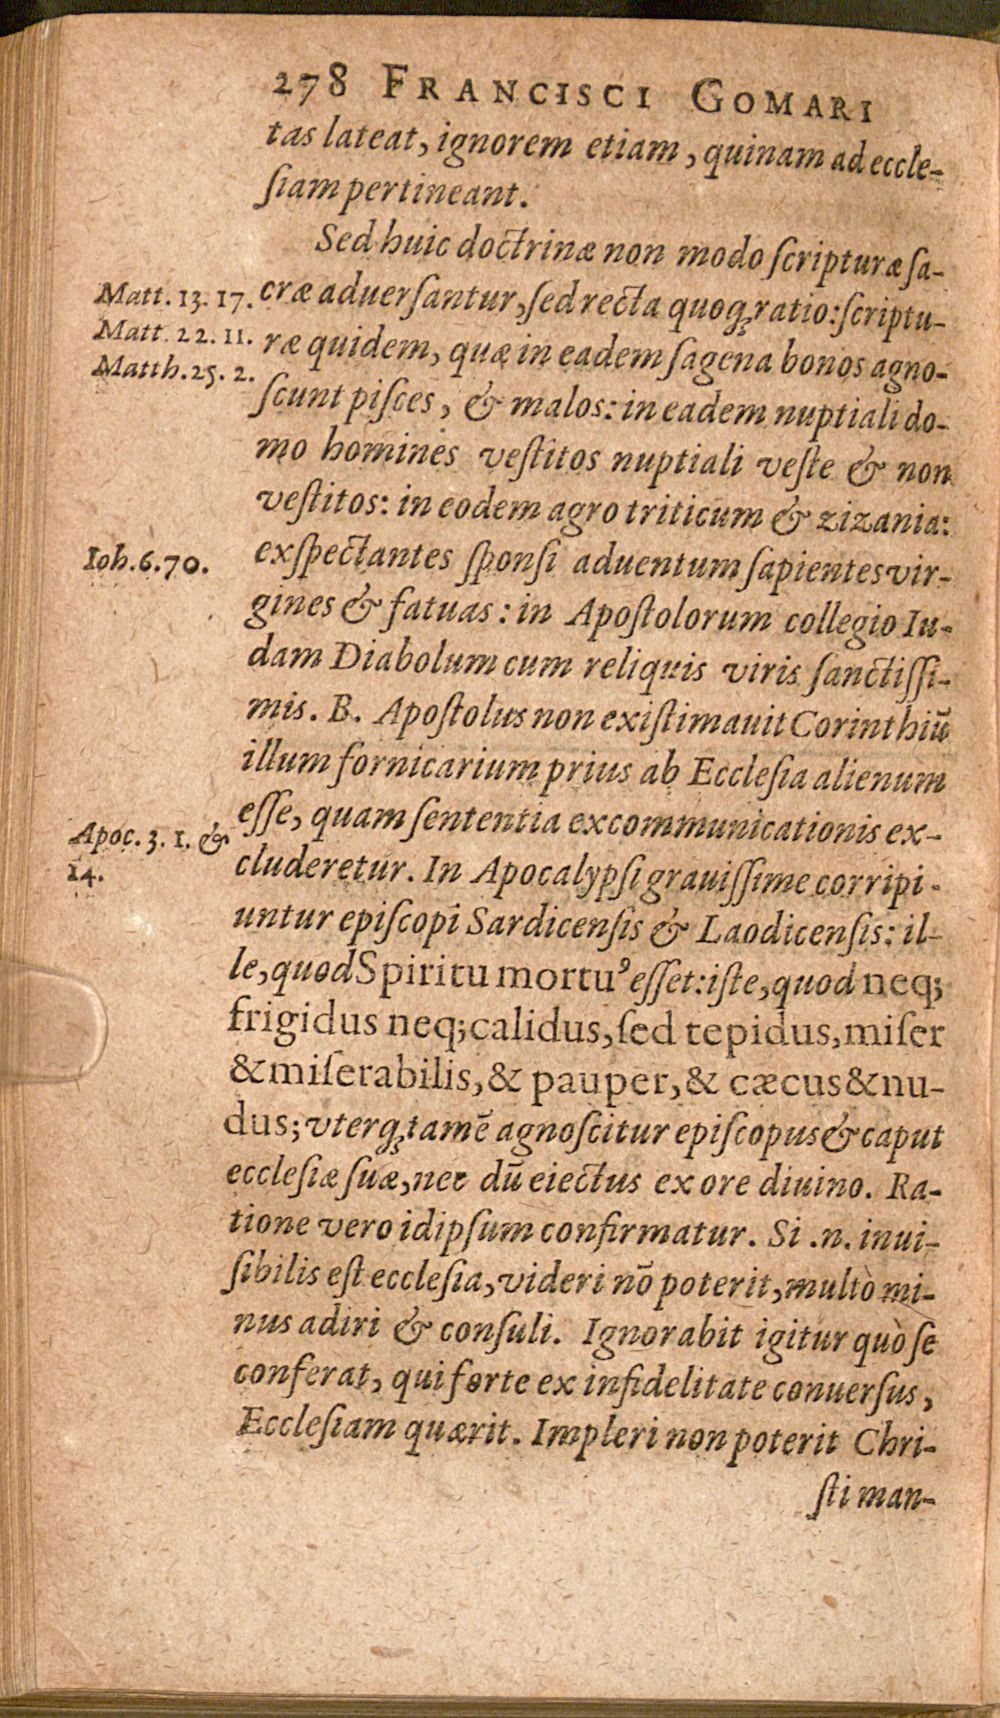 278 FRANCISCI GOMARI
tas lateat, ignorem etiam, quinam ad eccle-
ſiam pertineant.
Sed huic doctrinæ non modo ſcripturæ ſa-
Matt. 13. 17. cræ aduerſantur, ſed recta quoq₃ ratio: ſcriptu-
Matt. 22. 11. ræ quidem, quæ in eadem ſagena bonos agno-
Matth. 25. 2. ſcunt piſces, & malos: in eadem nuptiali do-
mo homines veſtitos nuptiali veſte & non
veſtitos: in eodem agro triticum & zizania:
Ioh. 6. 70. exſpectantes ſponſi aduentum ſapientes vir-
gines & fatuas: in Apoſtolorum collegio Iu-
dam Diabolum cum reliquis viris ſanctiſſi-
mis. B. Apoſtolus non exiſtimauit Corinthiū
illum fornicarium prius ab Eccleſia alienum
eſſe, quam ſententia excommunicationis ex-
Apoc. 3. 1. & cluderetur. In Apocalypſi grauiſſime corripi-
14.
untur epiſcopi Sardicenſis & Laodicenſis: il-
le, quod Spiritu mortuꝰ eſſet: iſte, quod neq;
frigidus neq; calidus, ſed tepidus, miſer
& miſerabilis, & pauper, & cæcus & nu-
dus; vterq₃ tamē agnoſcitur epiſcopus & caput
eccleſiæ ſuæ, nec dū eiectus ex ore diuino. Ra-
tione vero id ipſum confirmatur. Si .n. inui-
ſibilis eſt eccleſia, videri nō poterit, multò mi-
nus adiri & conſuli. Ignorabit igitur quò ſe
conferat, qui forte ex infidelitate conuerſus,
Eccleſiam quærit. Impleri non poterit Chri-
ſti man-